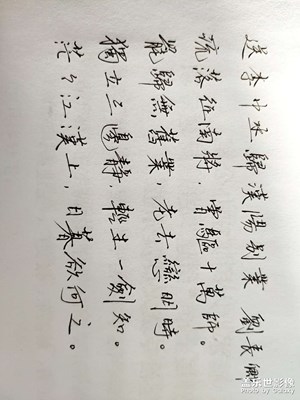 送李中丞歸漢陽別業 劉長卿
流落征南將，曾驅十萬師。
罷歸無舊業，老去戀明時。
獨立三邊靜，輕生一劍知。
茫々江漢上，日暮欲何之。
美乐世影像